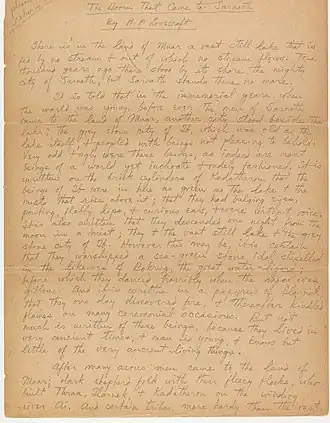 The Doom That Came to Sarnath
By H. P. Lovecraft
There is in the land of Mnar a vast still lake that is
fed by no stream & out of which no stream flows. Ten
thousand years ago there stood by its shore the mighty
city of Sarnath, but Sarnath stands there no more.
It is told that in the immemorial years when
the world was young, before ever the men of Sarnath
came to the land of Mnar, another city stood beside the
lake; the grey stone city of Ib, which was old as the
lake itself, & peopled with beings not pleasing to behold.
Very odd & ugly were these beings, as indeed are most
beings of a world yet inchoate & rudely fashioned. It is
written on the brick cylinders of Kadatheron that the
beings of Ib were in hue as green as the lake & the
mists that rise above it; that they had bulging eyes,
pouting, flabby lips, & curious ears, & were without voice.
It is also written that they descended one night from the
moon in a mist; they & the vast still lake & the grey
stone city of Ib. However this may be, it is certain
that they worshipped a sea-green stone idol chiselled
in the likeness of Bokrug, the great water-lizard;
before which they danced horribly when the moon was
gibbous. And it is written in the papyrus of Ilarnek
that they one day discovered fire, & thereafter kindled
flames on many ceremonial occasions. But not
much is written of these beings, because they lived in
very ancient times, & man is young, & knows but
little of the very ancient living things.
After many aeons men came to the land of
Mnar; dark shepherd folk with their fleecy flocks, who
built Thraa, Ilarnek, & Kadatheron on the winding
river Ai. And certain tribes, more hardy than the rest